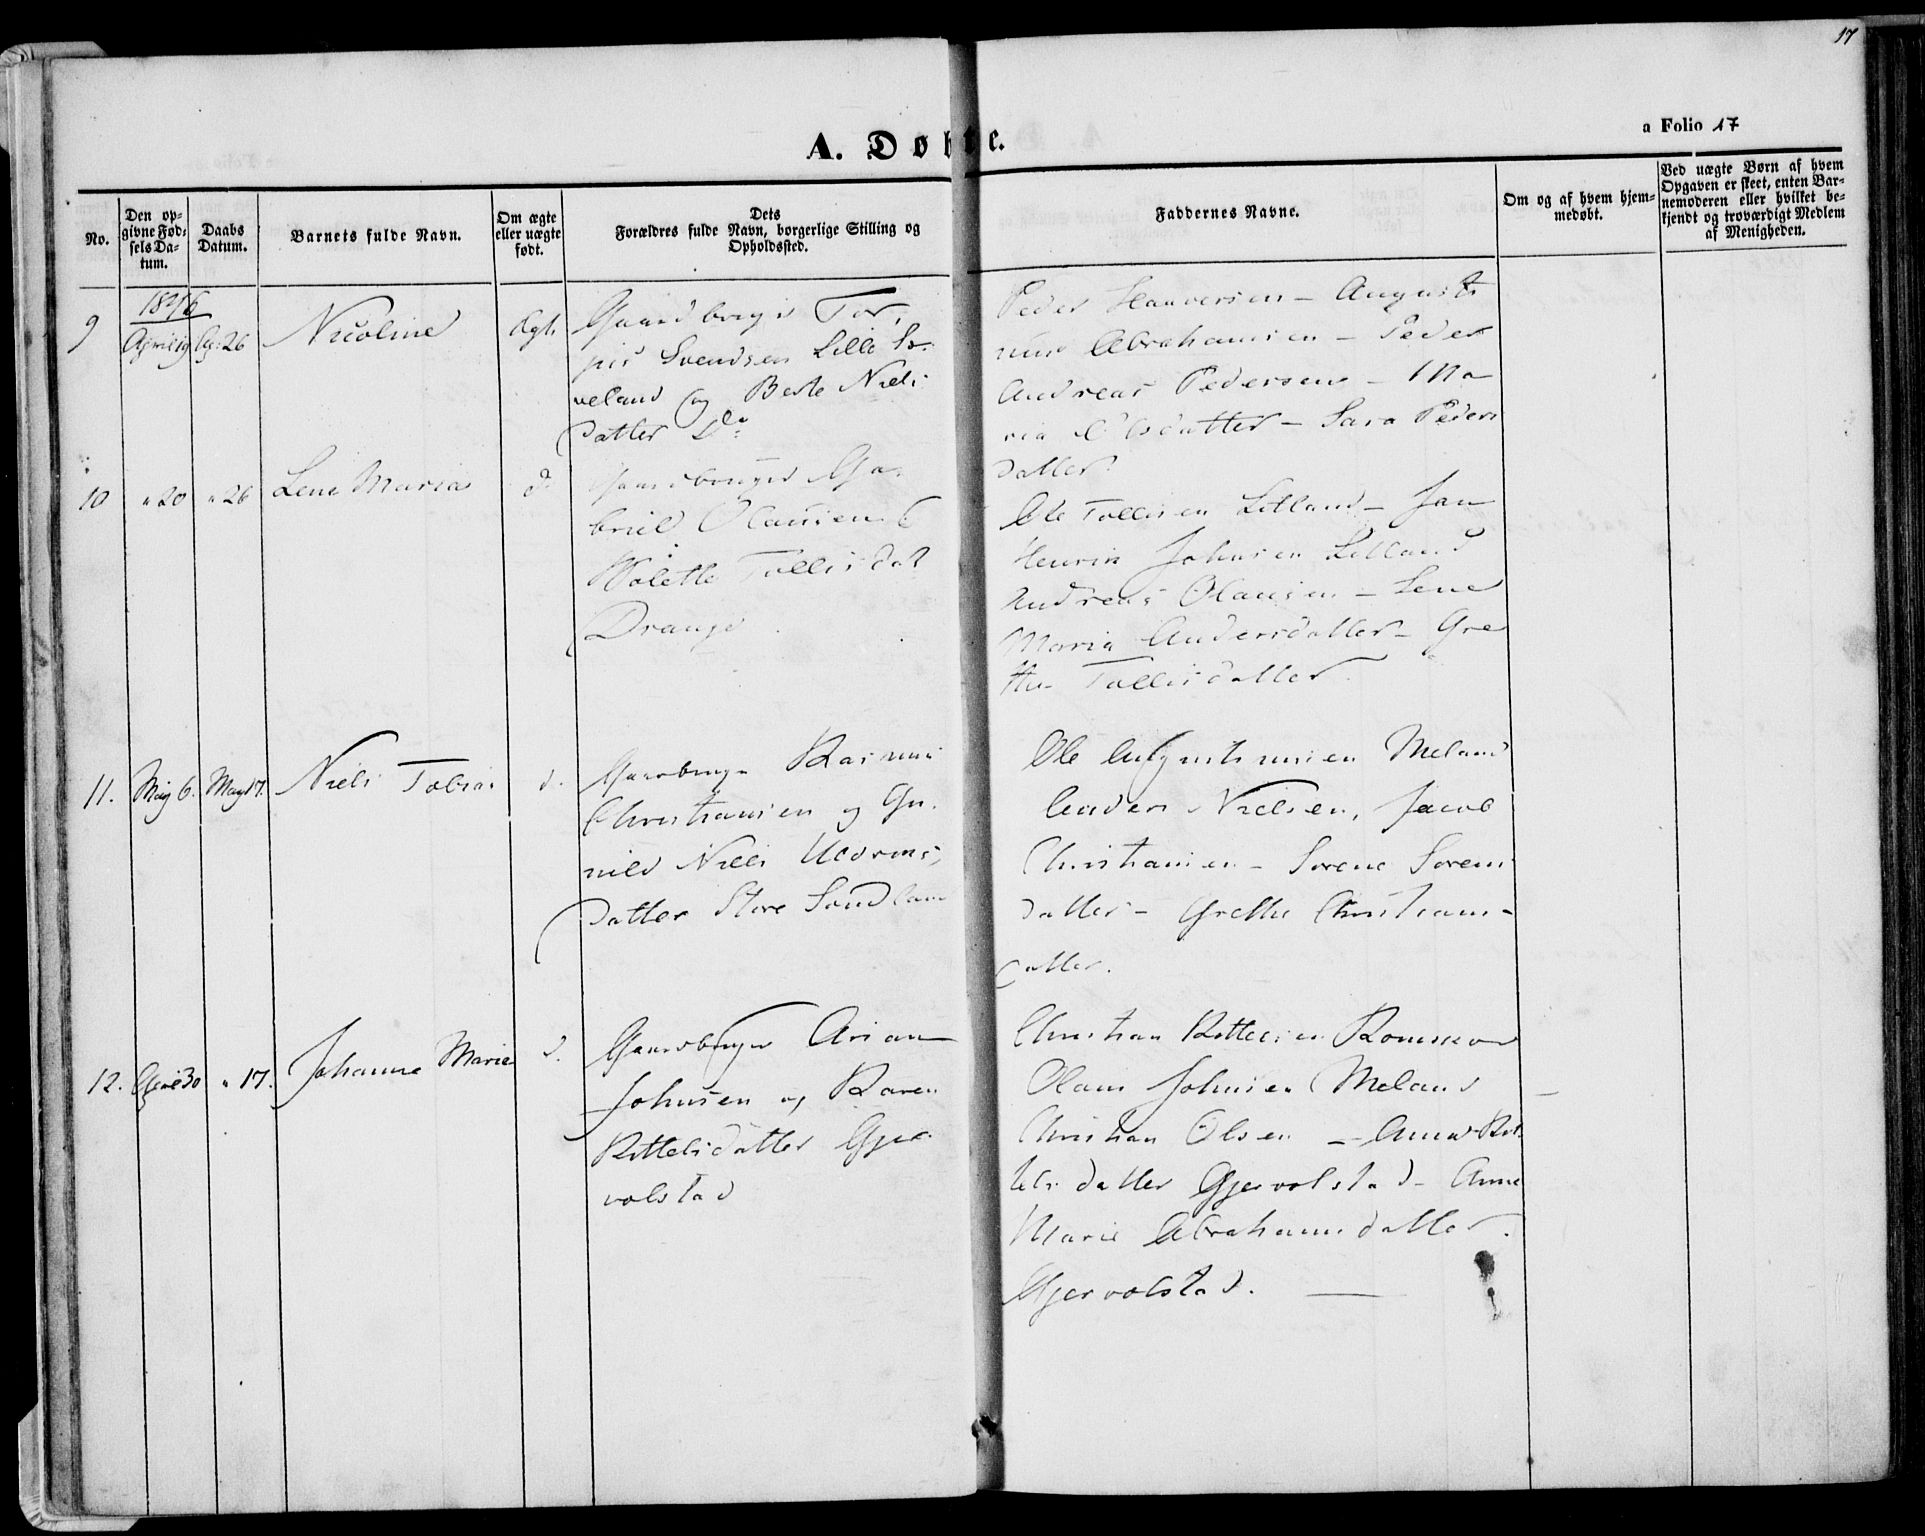 17
A. Døbte.
a Folio 17
No.
Den op-
givne Fød-
sels Da-
tum.
Daabs
Datum.
Barnets fulde Navn.
Om ægte
eller uægte
født.
Dets
Forældres fulde Navn, borgerlige Stilling og
Opholdssted.
Faddernes Navne.
Om og af hvem hjem-
medøbt.
Ved uægte Børn af hvem
Opgaven er skeet, enten Bar-
nemoderen eller hvilket be-
kjendt og troværdigt Medlem
af Menigheden.
1846
9 April 19 Ap. 26 Nicoline Ægt.
Gaardbruger Tor-
Svendsen Lille
veland og Berte Niels
datter Do
Peder Haaversen - August
Abrahamsen - Peder
Andreas Pedersen - Ma-
ria Olsdatter - Sara Peders
datter.
10 " 20 " 26 Lene Maria d.
Gaardbruger Ga-
briel Olausen
Tollisdat
Drange
Ole Tollisen Litland - Jan
Henrik Johnsen Litland
Andreas Olausen - Lene
Maria Andersdatter - Gre
the Tollisdatter.
11. May 6. May 17. Niels Tobias d.
Gaardbruger Rasmus
Christiansen og Gu-
nild Niels
datter Store Sandland
Ole Augustinusen Meland
Anders Nielsen, Jacob
Christiansen - Sorene Sorens
datter - Grethe Christians-
datter.
12. April 30 " 17. Johanne Marie d.
Gaardbruger Arian
Johnsen og Karen
Kittelsdatter Gjer-
volstad
Christian Kittelsen
Olaus Johnsen Meland
Christian Olsen - Anna Kit-
tels datter Gjervolstad - Anne
Marie Abrahamsdatter.
Gjervolstad.